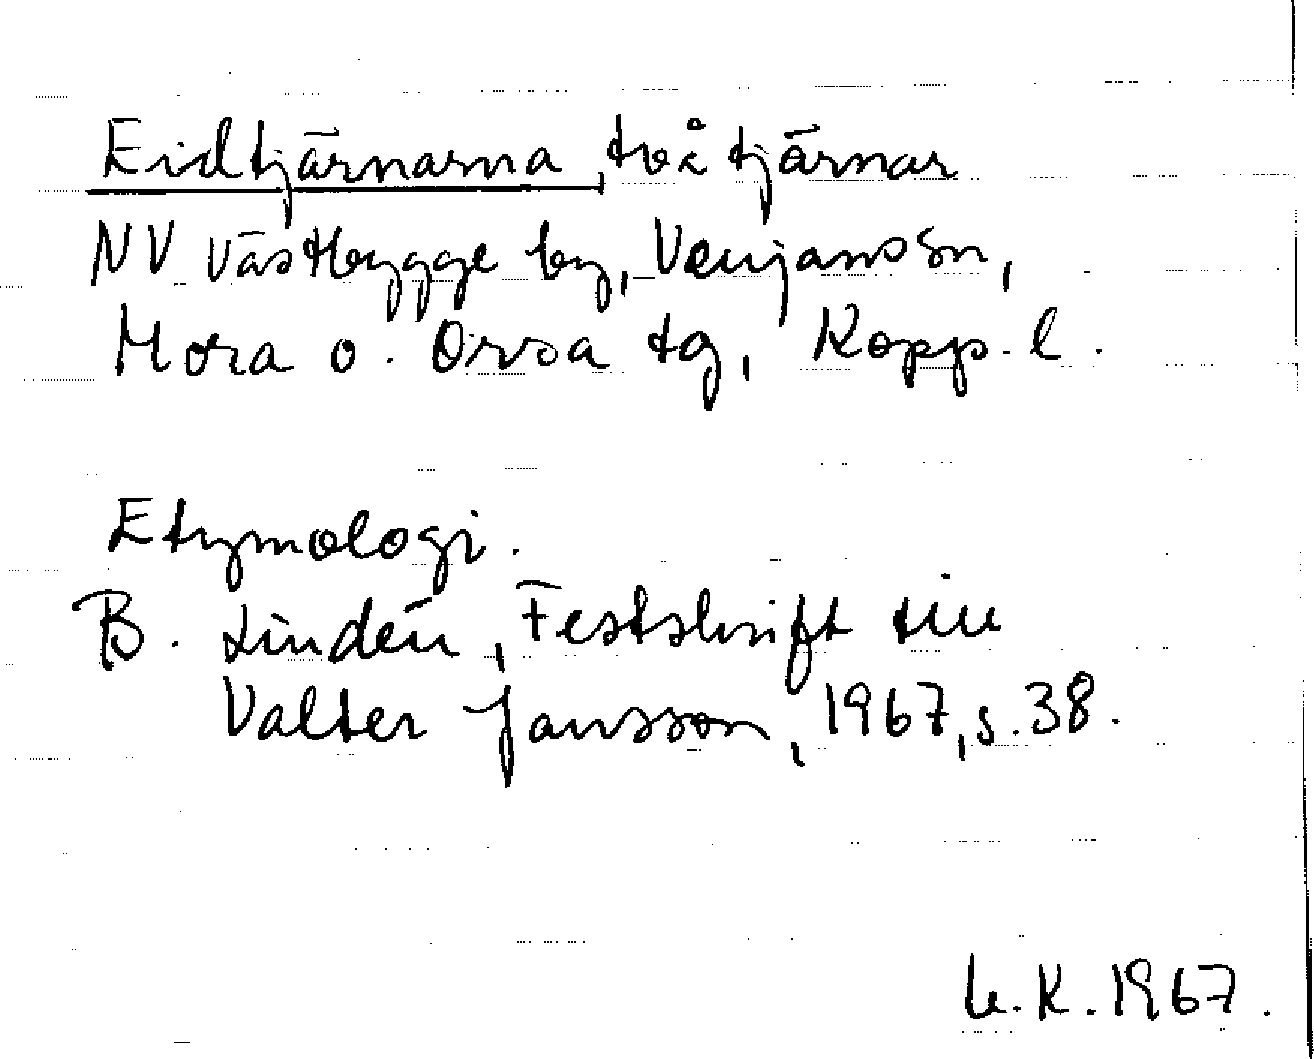 Eidtjärnarna, två tjärnar
NV Västbygge by, Venjans sn,
Mora o. Orsa tg, Kopp. l.
Etymologi.
B. Lindén, Festskrift till
Valter Jansson, 1967, s. 38.
K. 1967.